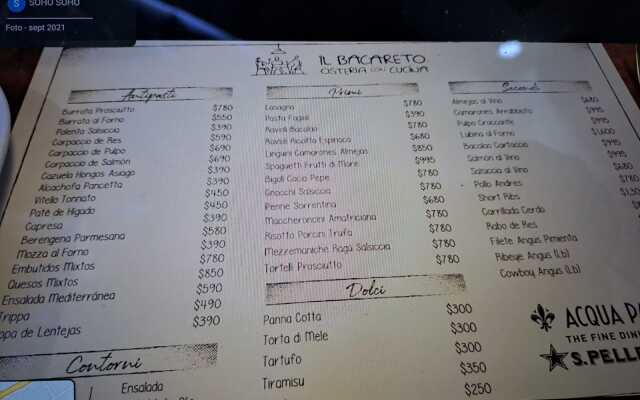 SOHO SOHO
Foto - sept 2021
IL BACARETO
OSTERIA CON CUCINA
Antipasti
Burrata Prosciutto $780
Burrata al Forno $550
Polenta Salsiccia $390
Carpaccio de Res $590
Carpaccio de Pulpo $690
Carpaccio de Salmón $690
Cazuela Hongos Asiago $390
Alcachofa Pancetta $390
Vitello Tonnato $450
Paté de Hígado $450
Capresa $390
Berengena Parmesana $580
Mozza al Forno $390
Embutidos Mixtos $780
Quesos Mixtos $850
Ensalada Mediterránea $590
Trippa $490
opa de Lentejas $390
Contorni
Ensalada
Primi
Lasagna $780
Pasta Fagioli $390
Ravioli Bacalao $780
Ravioli Ricotta Espinaca $680
Linguini Camarones Almejas $850
Spaguetti Frutti di Mare $995
Bigoli Cacio Pepe $780
Gnocchi Salsiccia $780
Penne Sorrentina $680
Maccheroncini Amatriciana $780
Risotto Porcini Trufa $780
Mezzemaniche Ragú Salsiccia $780
Tortelli Prosciutto $780
Dolci
Panna Cotta $300
Torta di Mele $300
Tartufo $300
Tiramisu $350
$250
Secondi
Almejas al Vino $680
Camarones Arrabbiata $995
Pulpo Croccante $995
Lubina al Forno $1,600
Bacalao Cartoccio $995
Salmón al Vino $995
Salsiccia al Vino $680
Pollo Andres $780
Short Ribs
Carrillada Cerdo
Rabo de Res
Filete Angus Pimienta
Ribeye Angus (Lb)
Cowboy Angus (Lb)
ACQUA P
THE FINE DIN
S.PELLE